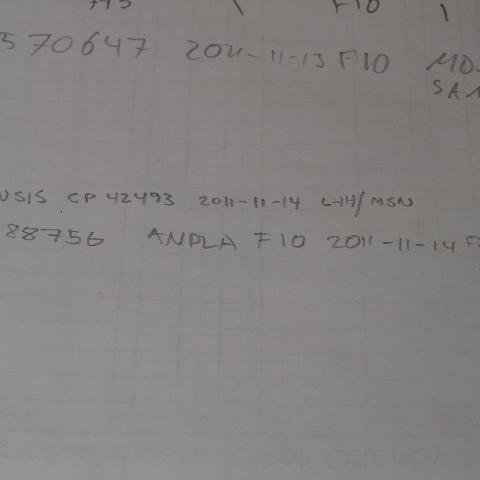 F10
570647 2011-11-13 F10
SAN
CP 42493 2011-11-14 LHH/MSN
88756 ANPLA F10 2011-11-14